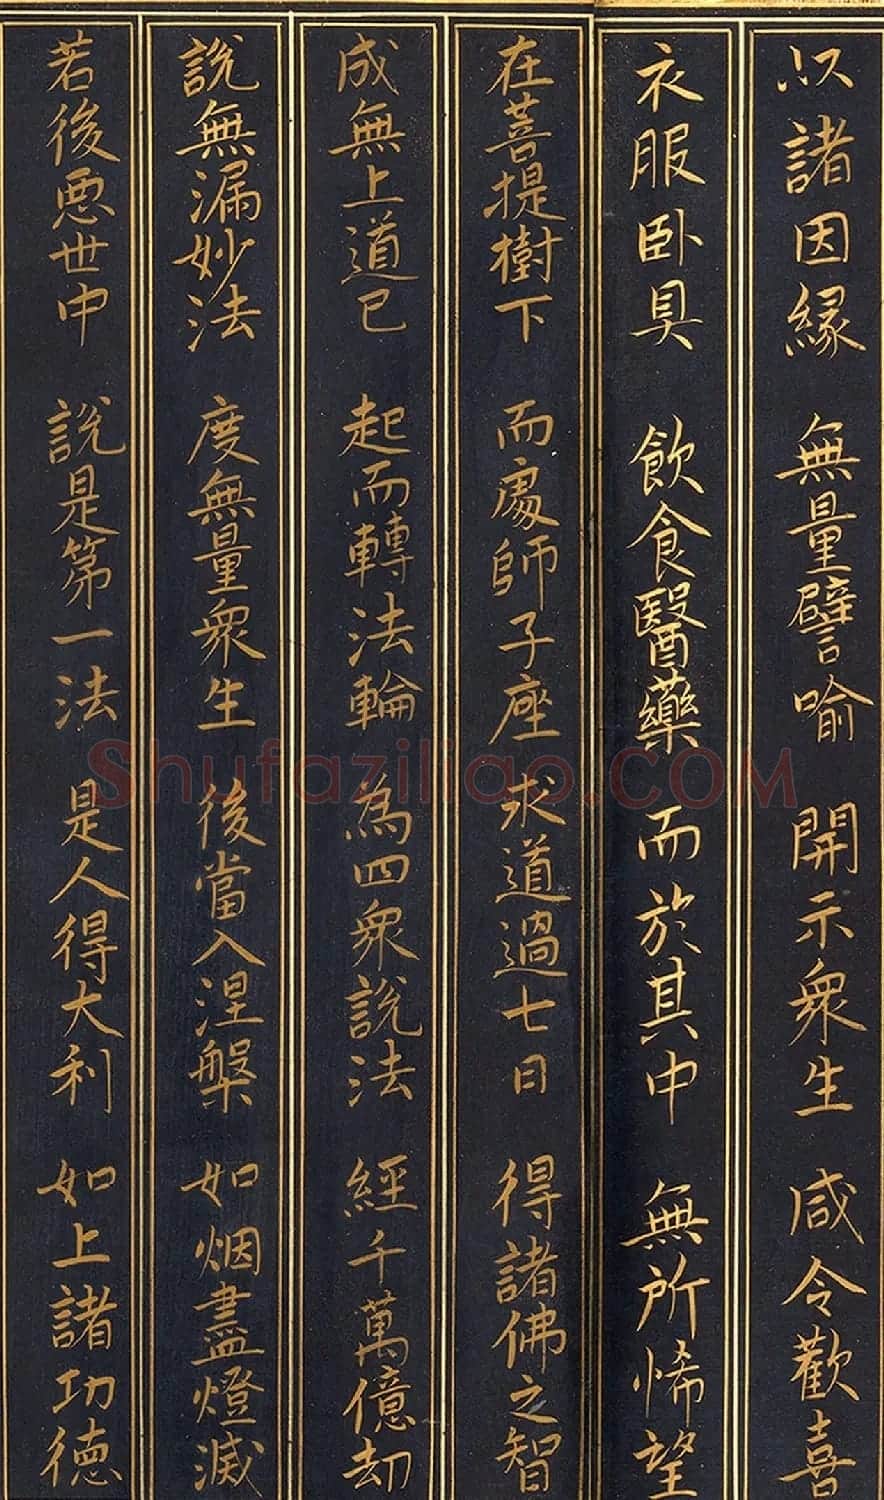 以諸因緣 無量譬喻 開示衆生 咸令歡喜
衣服卧具 飲食醫藥 而於其中 無所悕望
在菩提樹下 而處師子座 求道過七日 得諸佛之智
成無上道已 起而轉法輪 為四衆說法 經千萬億劫
說無漏妙法 度無量衆生 後當入涅槃 如烟盡燈滅
若後惡世中 說是第一法 是人得大利 如上諸功德
Shufaziliao.COM